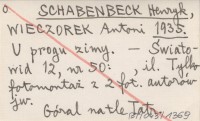 o SCHABENBECK Henryk,
WIECZOREK Antoni 1935.
U progu zimy. – Świato-
wid 12, nr 50: , il. Tylko
fotomontaż z 2 fot. autorów
jw.
Góral na tle Tatr